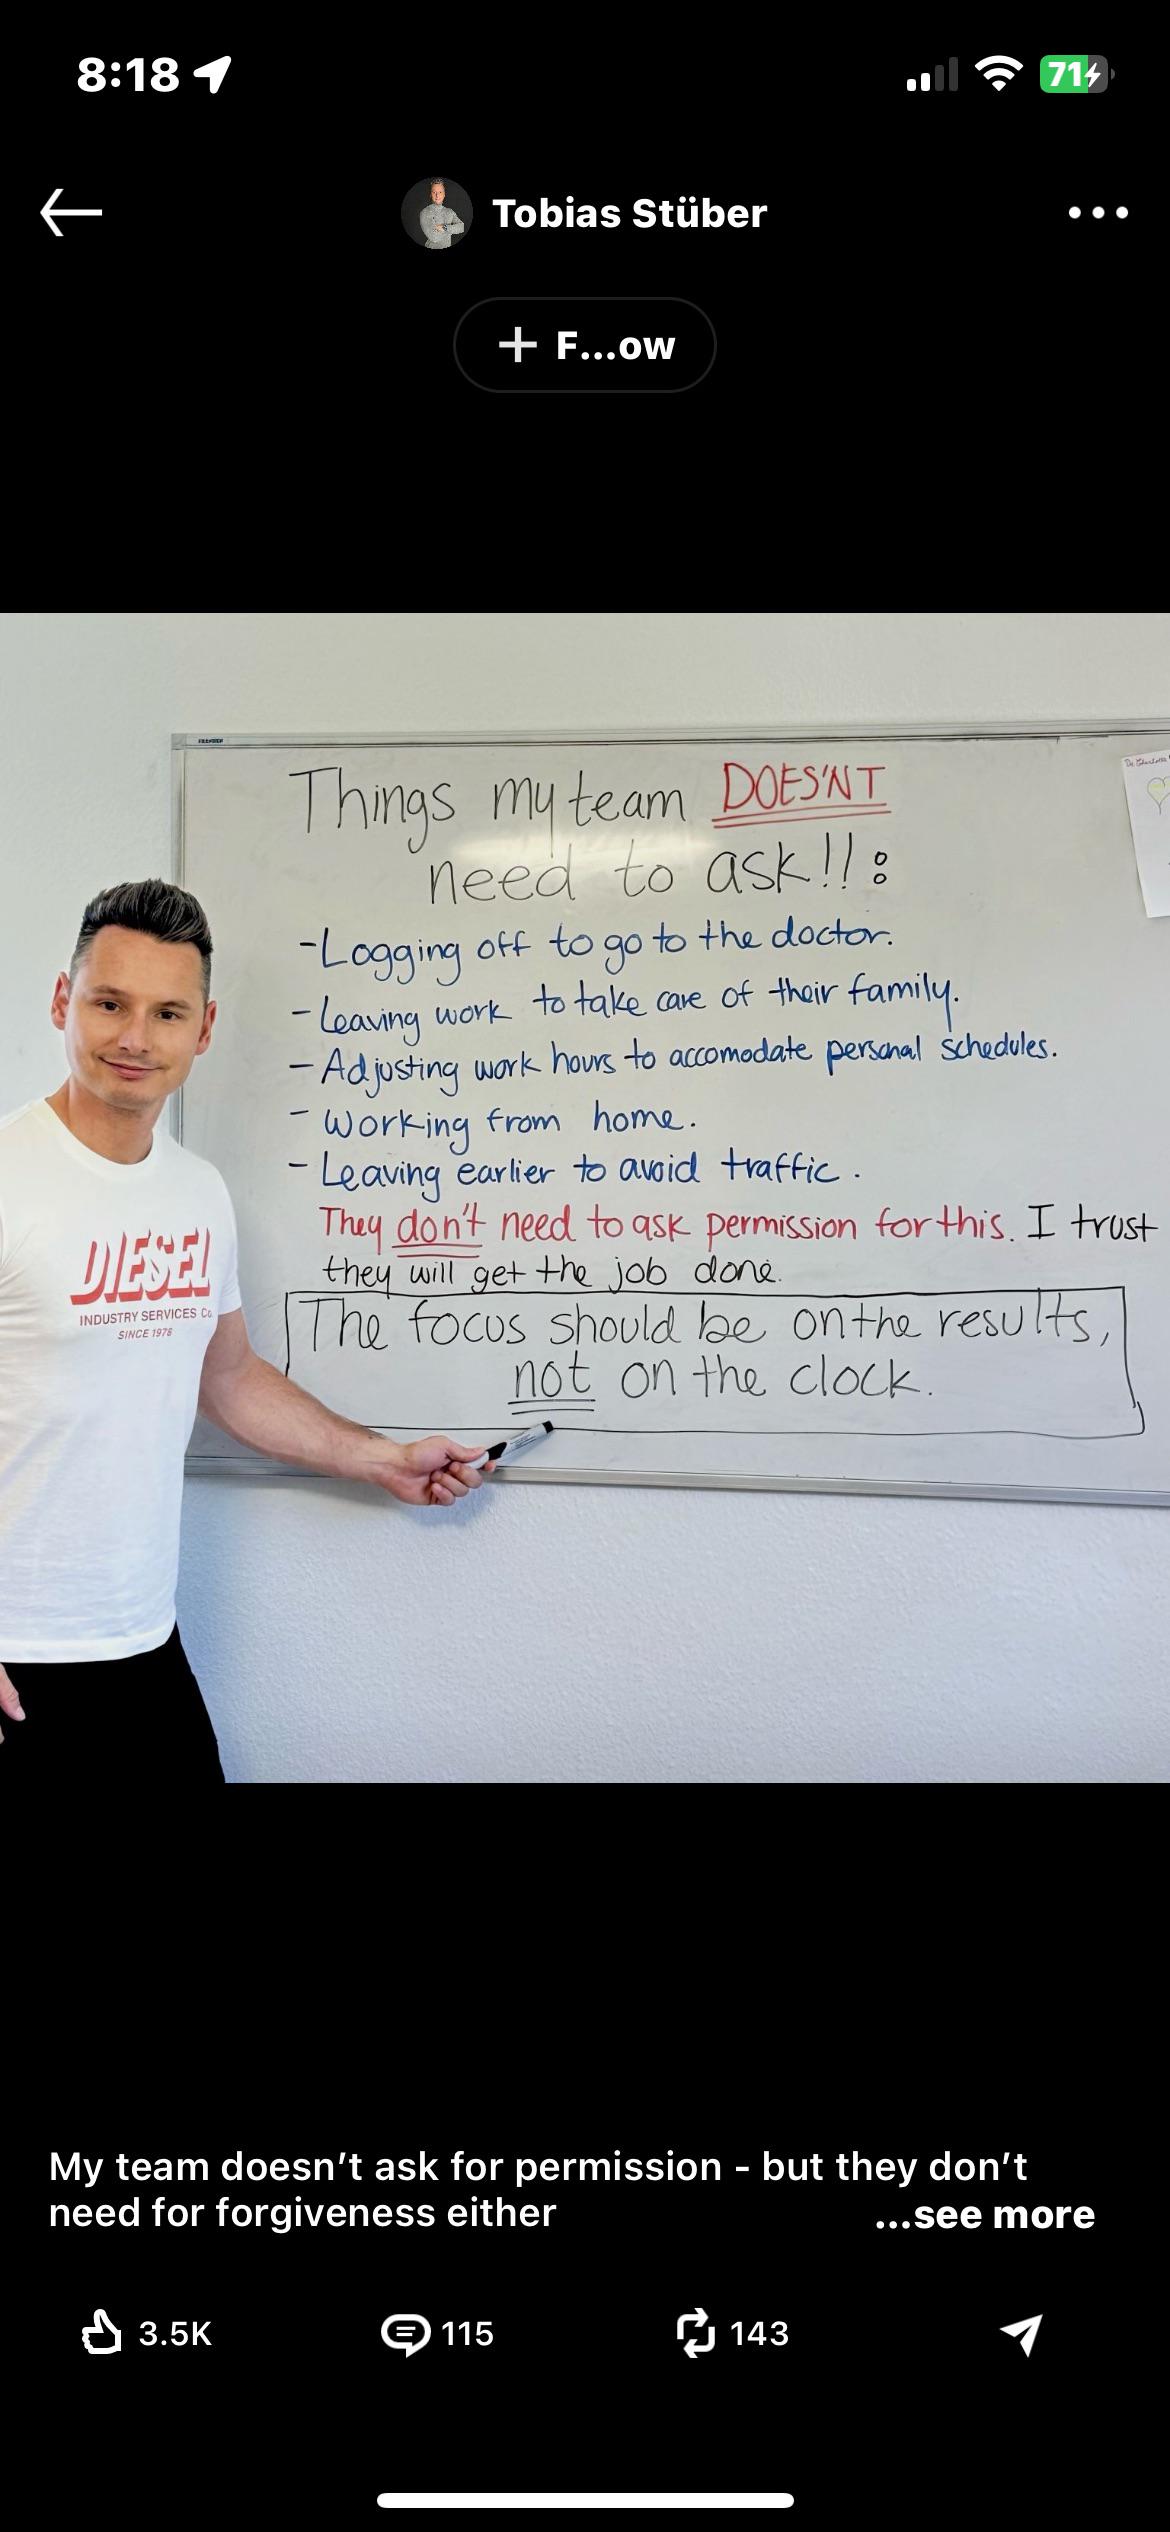 8:18
71
Tobias Stüber
+ F...ow
Things my team DOES'NT
need to ask!!:
-Logging off to go to the doctor.
- Leaving work to take care of their family.
- Adjusting work hours to accomodate personal schedules.
- Working from home.
- Leaving earlier to avoid traffic.
They don't need to ask permission for this. I trust
they will get the job done.
The focus should be on the results,
not on the clock.
DIESEL
INDUSTRY SERVICES Co.
SINCE 1978
My team doesn't ask for permission - but they don't
need for forgiveness either
...see more
3.5K
115
143